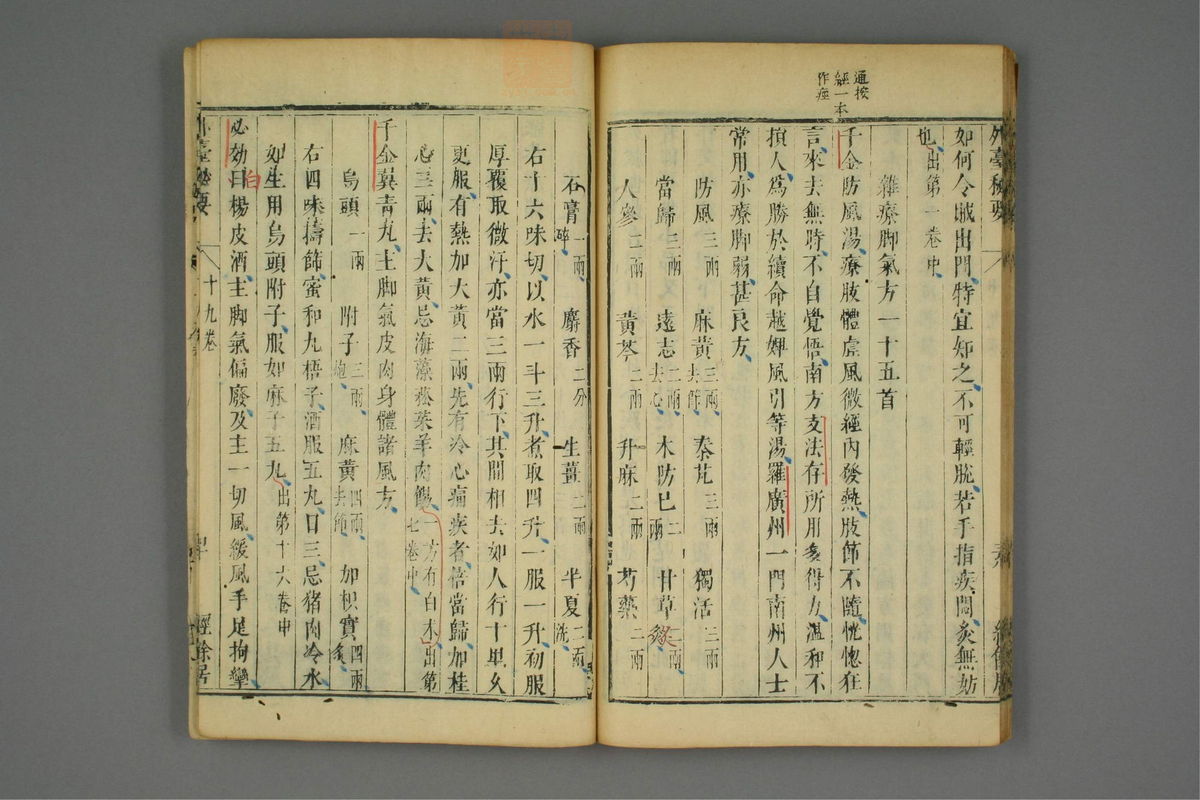 通按
經一本
作痙
外臺秘要
如何令賊出門特宜知之不可輕脫若手指疾悶灸無妨
也出第一卷中
雜療脚氣方一十五首
千金防風湯療肢體虛風微經內發熱肢節不隨恍惚狂
言來去無時不自覺悟南方支法存所用多得力溫和不
損人為勝於續命越婢風引等湯羅廣州一門南州人士
常用亦療脚弱甚良方
防風三兩 麻黃三兩去節 秦艽三兩 獨活三兩
當歸二兩 遠志二兩去心 木防己二兩 甘草二兩炙
人參二兩 黃芩二兩 升麻二兩 芍藥二兩
石膏一兩碎 麝香二分 生薑二兩 半夏二兩洗
右十六味切以水一斗三升煮取四升一服一升初服
厚覆取微汗亦當三兩行下其間相去如人行十里久
更服有熱加大黃二兩先有冷心痛疾者倍當歸加桂
心三兩去大黃忌海藻菘菜羊肉餳一方有白朮出第七卷中
千金翼青丸主脚氣皮肉身體諸風方
烏頭一兩 附子三兩炮 麻黃四兩去節 加枳實四兩炙
右四味擣篩蜜和丸梧子酒服五丸日三忌猪肉冷水
如生用烏頭附子服如麻子五丸出第十六卷中
必効白楊皮酒主脚氣偏廢及主一切風緩風手足拘攣
外臺秘要 十九卷 經餘居